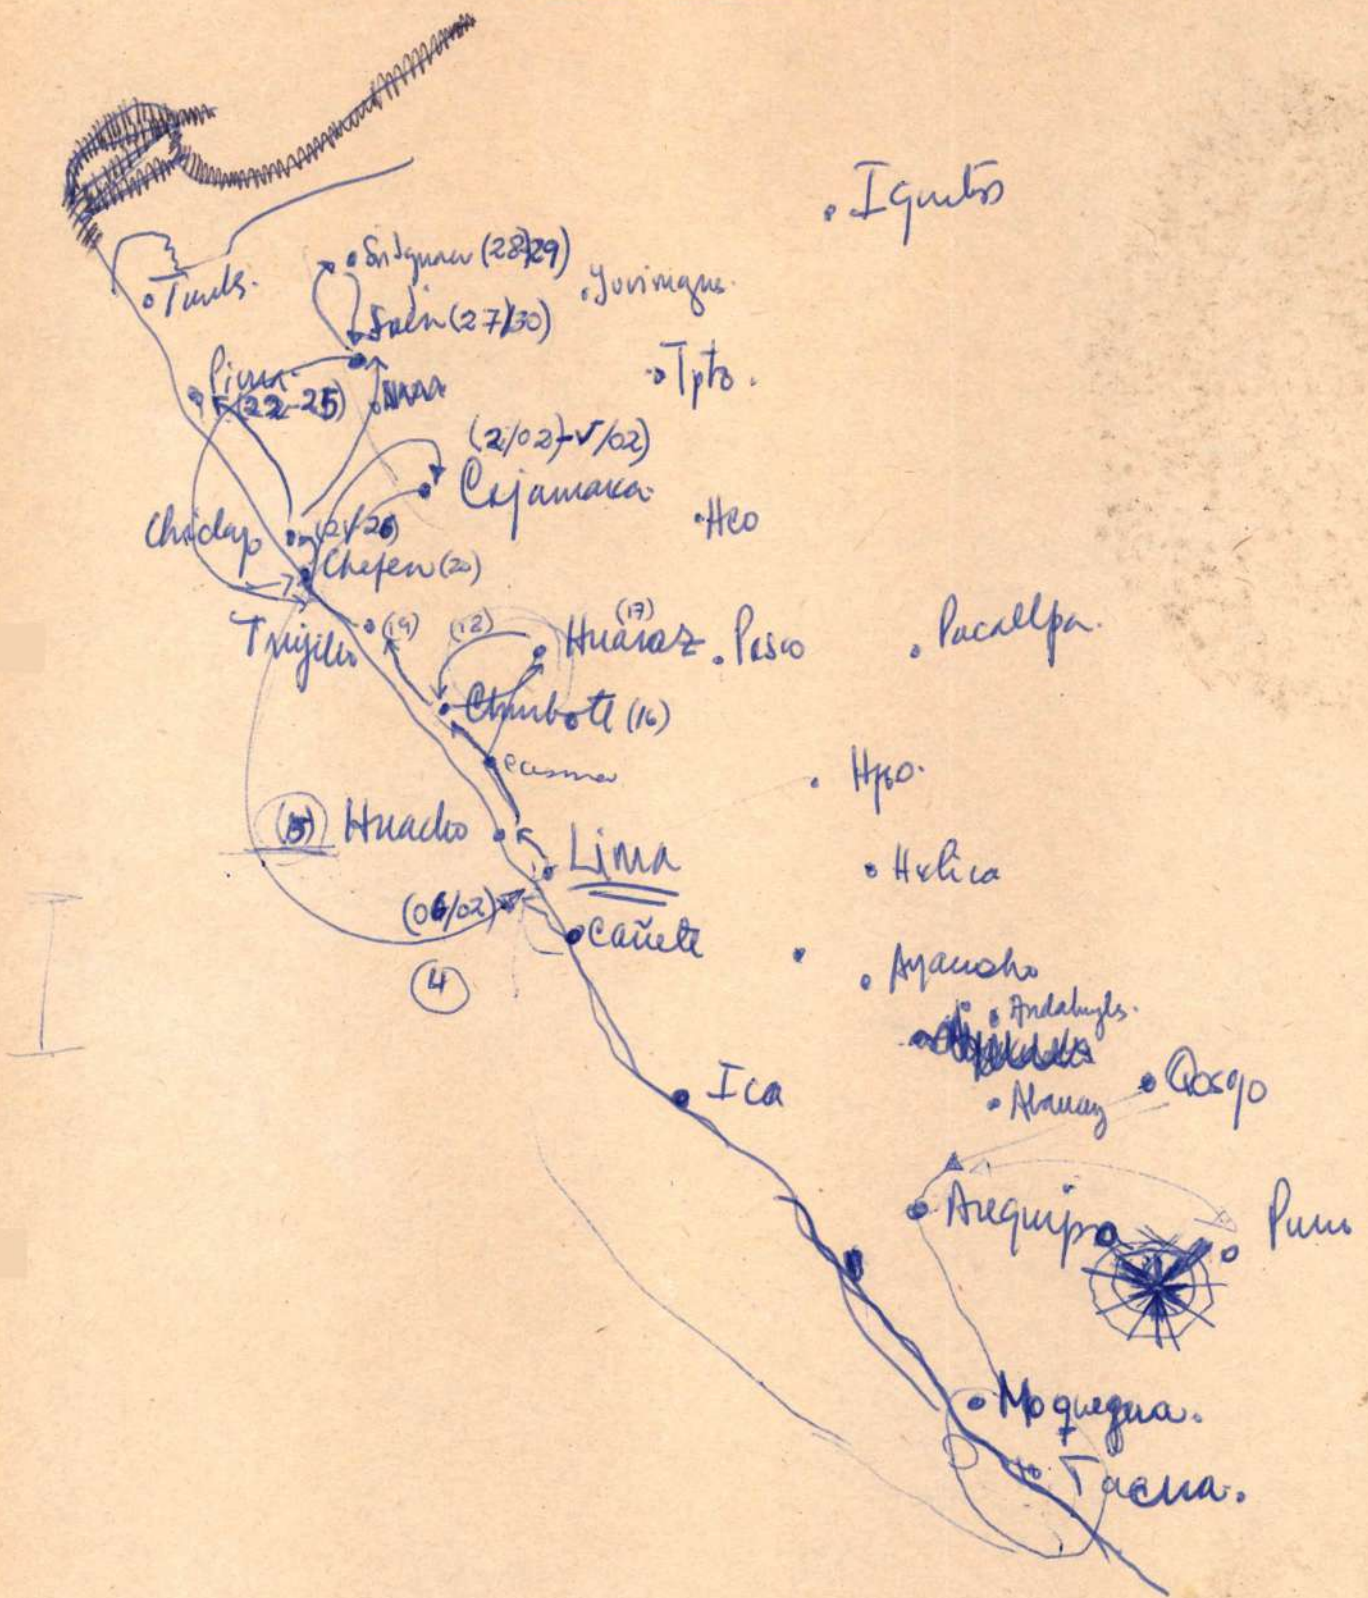 Iquitos
Sn Ignacio (28/29)
Tumbs.
Yurimagus.
Jaén (27/30)
Tpto.
Piura
(22-25)
(2/02)-5/02)
Cajamarca.
Hco
Chiclayo (21/26)
Chepen (20)
(17)
Trujillo (19) (18) Huáraz . Pasco
Pucallpa.
Chimbote (16)
casma
Hyo.
(15) Huacho
Lima
Hvlica
(06/02)
Cañete
(4)
Ayacucho
Andahuyls.
Qosqo
Abancay
Ica
Arequipa
Puno
Moquegua.
Tacna.